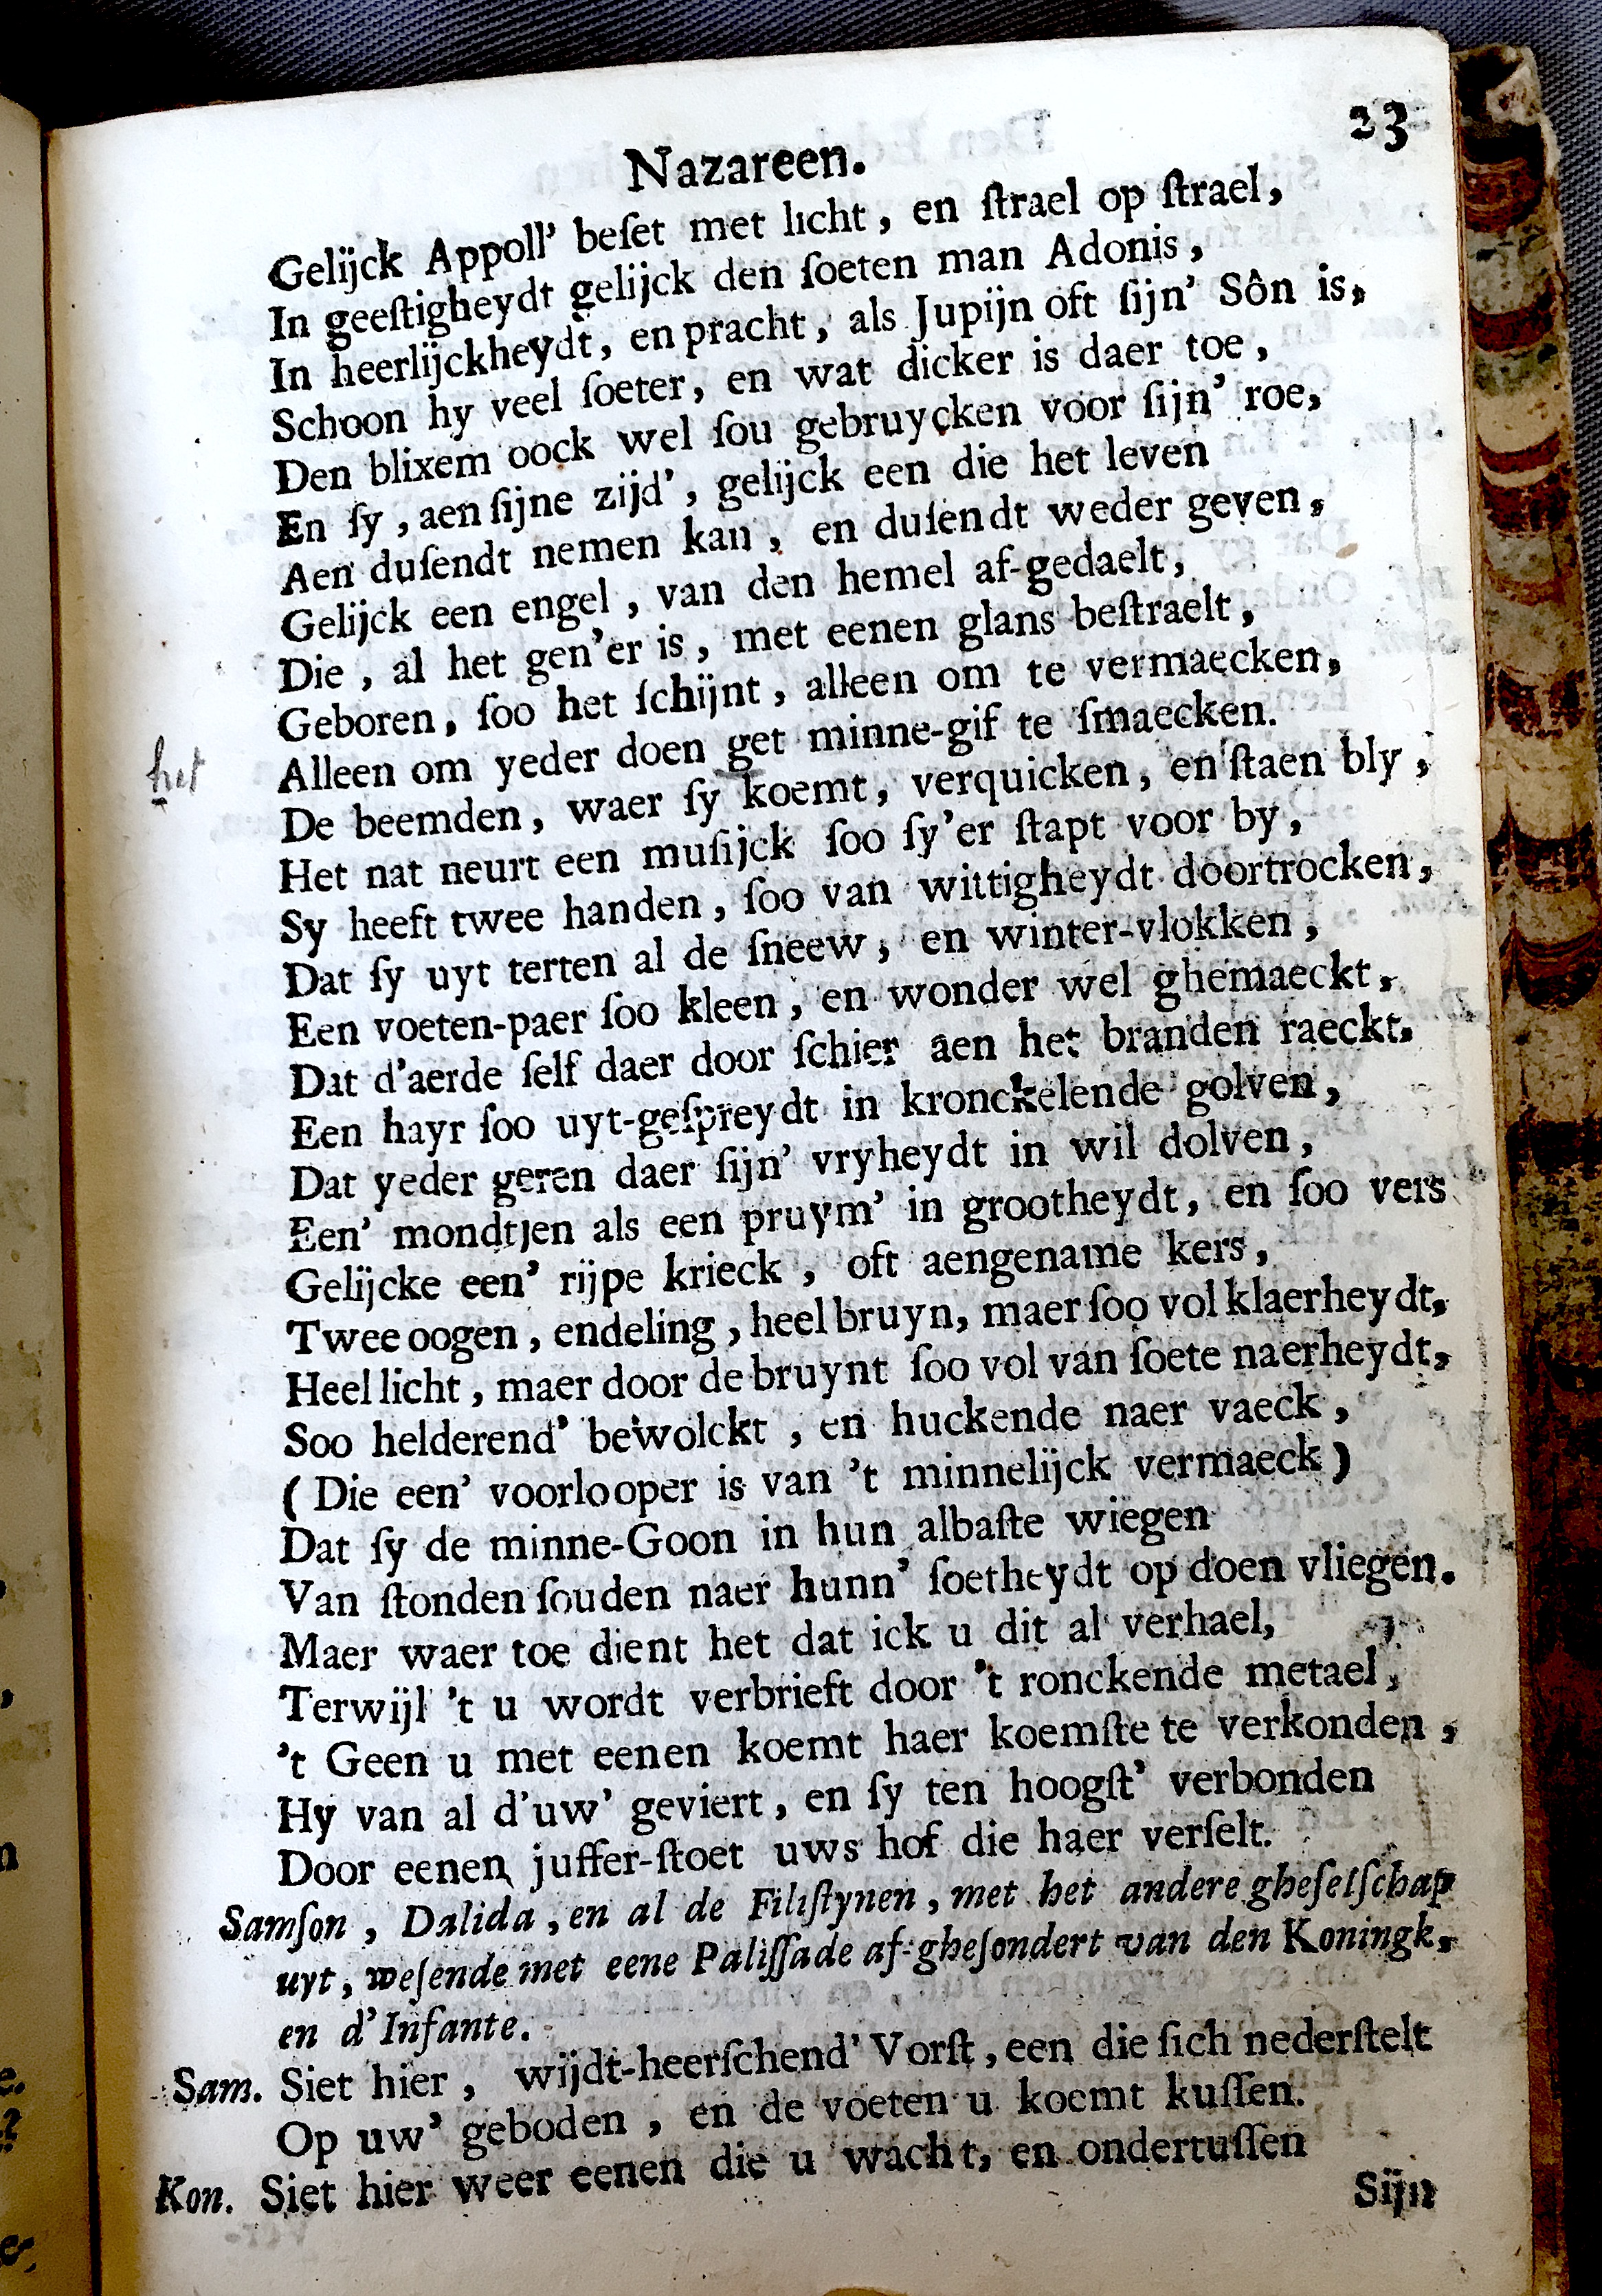 23
Nazareen.
Gelijck Appoll' beſet met licht, en ſtrael op ſtrael,
In geeſtigheydt gelijck den ſoeten man Adonis,
In heerlijckheydt, en pracht, als Jupijn oft ſijn' Sôn is,
Schoon hy veel ſoeter, en wat dicker is daer toe,
Den blixem oock wel ſou gebruycken voor ſijn' roe,
En ſy, aen ſijne zijd', gelijck een die het leven
Aen duſendt nemen kan, en duſendt weder geven,
Gelijck een engel, van den hemel af-gedaelt,
Die, al het gen'er is, met eenen glans beſtraelt,
Geboren, ſoo het ſchijnt, alleen om te vermaecken,
het
Alleen om yeder doen get minne-gif te ſmaecken.
De beemden, waer ſy koemt, verquicken, en ſtaen bly,
Het nat neurt een muſijck ſoo ſy'er ſtapt voor by,
Sy heeft twee handen, ſoo van wittigheydt doortrocken,
Dat ſy uyt terten al de ſneew, en winter-vlokken,
Een voeten-paer ſoo kleen, en wonder wel ghemaeckt,
Dat d'aerde ſelf daer door ſchier aen het branden raeckt.
Een hayr ſoo uyt-geſpreydt in kronckelende golven,
Dat yeder geren daer ſijn' vryheydt in wil dolven,
Een' mondtjen als een pruym' in grootheydt, en ſoo vers
Gelijcke een' rijpe krieck, oft aengename kers,
Twee oogen, endeling, heel bruyn, maer ſoo vol klaerheydt,
Heel licht, maer door de bruynt ſoo vol van ſoete naerheydt,
Soo helderend' bewolckt, en huckende naer vaeck,
(Die een' voorlooper is van 't minnelijck vermaeck)
Dat ſy de minne-Goon in hun albaſte wiegen
Van ſtonden ſouden naer hunn' ſoetheydt op doen vliegen.
Maer waer toe dient het dat ick u dit al verhael,
Terwijl 't u wordt verbrieft door 't ronckende metael,
't Geen u met eenen koemt haer koemſte te verkonden,
Hy van al d'uw' geviert, en ſy ten hoogſt' verbonden
Door eenen juffer-ſtoet uws hof die haer verſelt.
Samſon, Dalida, en al de Filiſtynen, met het andere gheſelſchap
uyt, weſende met eene Paliſſade af-gheſondert van den Koningk,
en d'Infante.
Sam. Siet hier, wijdt-heerſchend' Vorſt, een die ſich nederſtelt
Op uw' geboden, en de voeten u koemt kuſſen.
Kon. Siet hier weer eenen die u wacht, en ondertuſſen
Sijn